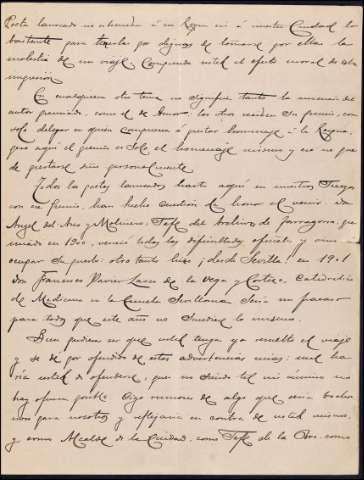 Poeta laureado no atiendan á su Reina ni á nuestra Ciudad lo
bastante para tenerla por dignas de tomarse por ellas la
molestia de un viaje. Comprenda usted el efecto moral de esta
impresión.
En cualquiera otro tema no significa tanto la ausencia del
autor premiado, como el de Amor; los otros reciben su premio, con
solo delegar en quien
pero aquí el premio es solo el homenaje mismo y ese no pue
de prestarse sino personalmente.
Todos los poetas laureados hasta aquí en nuestros Juegos
con ese premio, han hecho cuestión de honor el venir. Don
Angel del Arco y Molinero, Jefe del Archivo de Tarragona, pre
miado en 1900, venció todas las dificultades oficiales, y vino á
ocupar su puesto: otro tanto hizo ¡desde Sevilla! en 1901
Don Francisco Javier Lasso de la Vega y Cortezo, Catedrático
de Medicina en la Escuela Sevillana. Sería un fracaso
para todos que este año no sucediese lo mismo.
Bien pudiera ser que usted tenga ya resuelto el viaje
y se dé por ofendido de estas advertencias mias: mal ha
ría usted de ofenderse, que no siendo tal mi ánimo no
hay ofensa posible. Oigo rumores de algo que sería bochor
noso para nosotros y reflejaría en contra de usted mismo,
y como Alcalde de la Ciudad, como Jefe de la